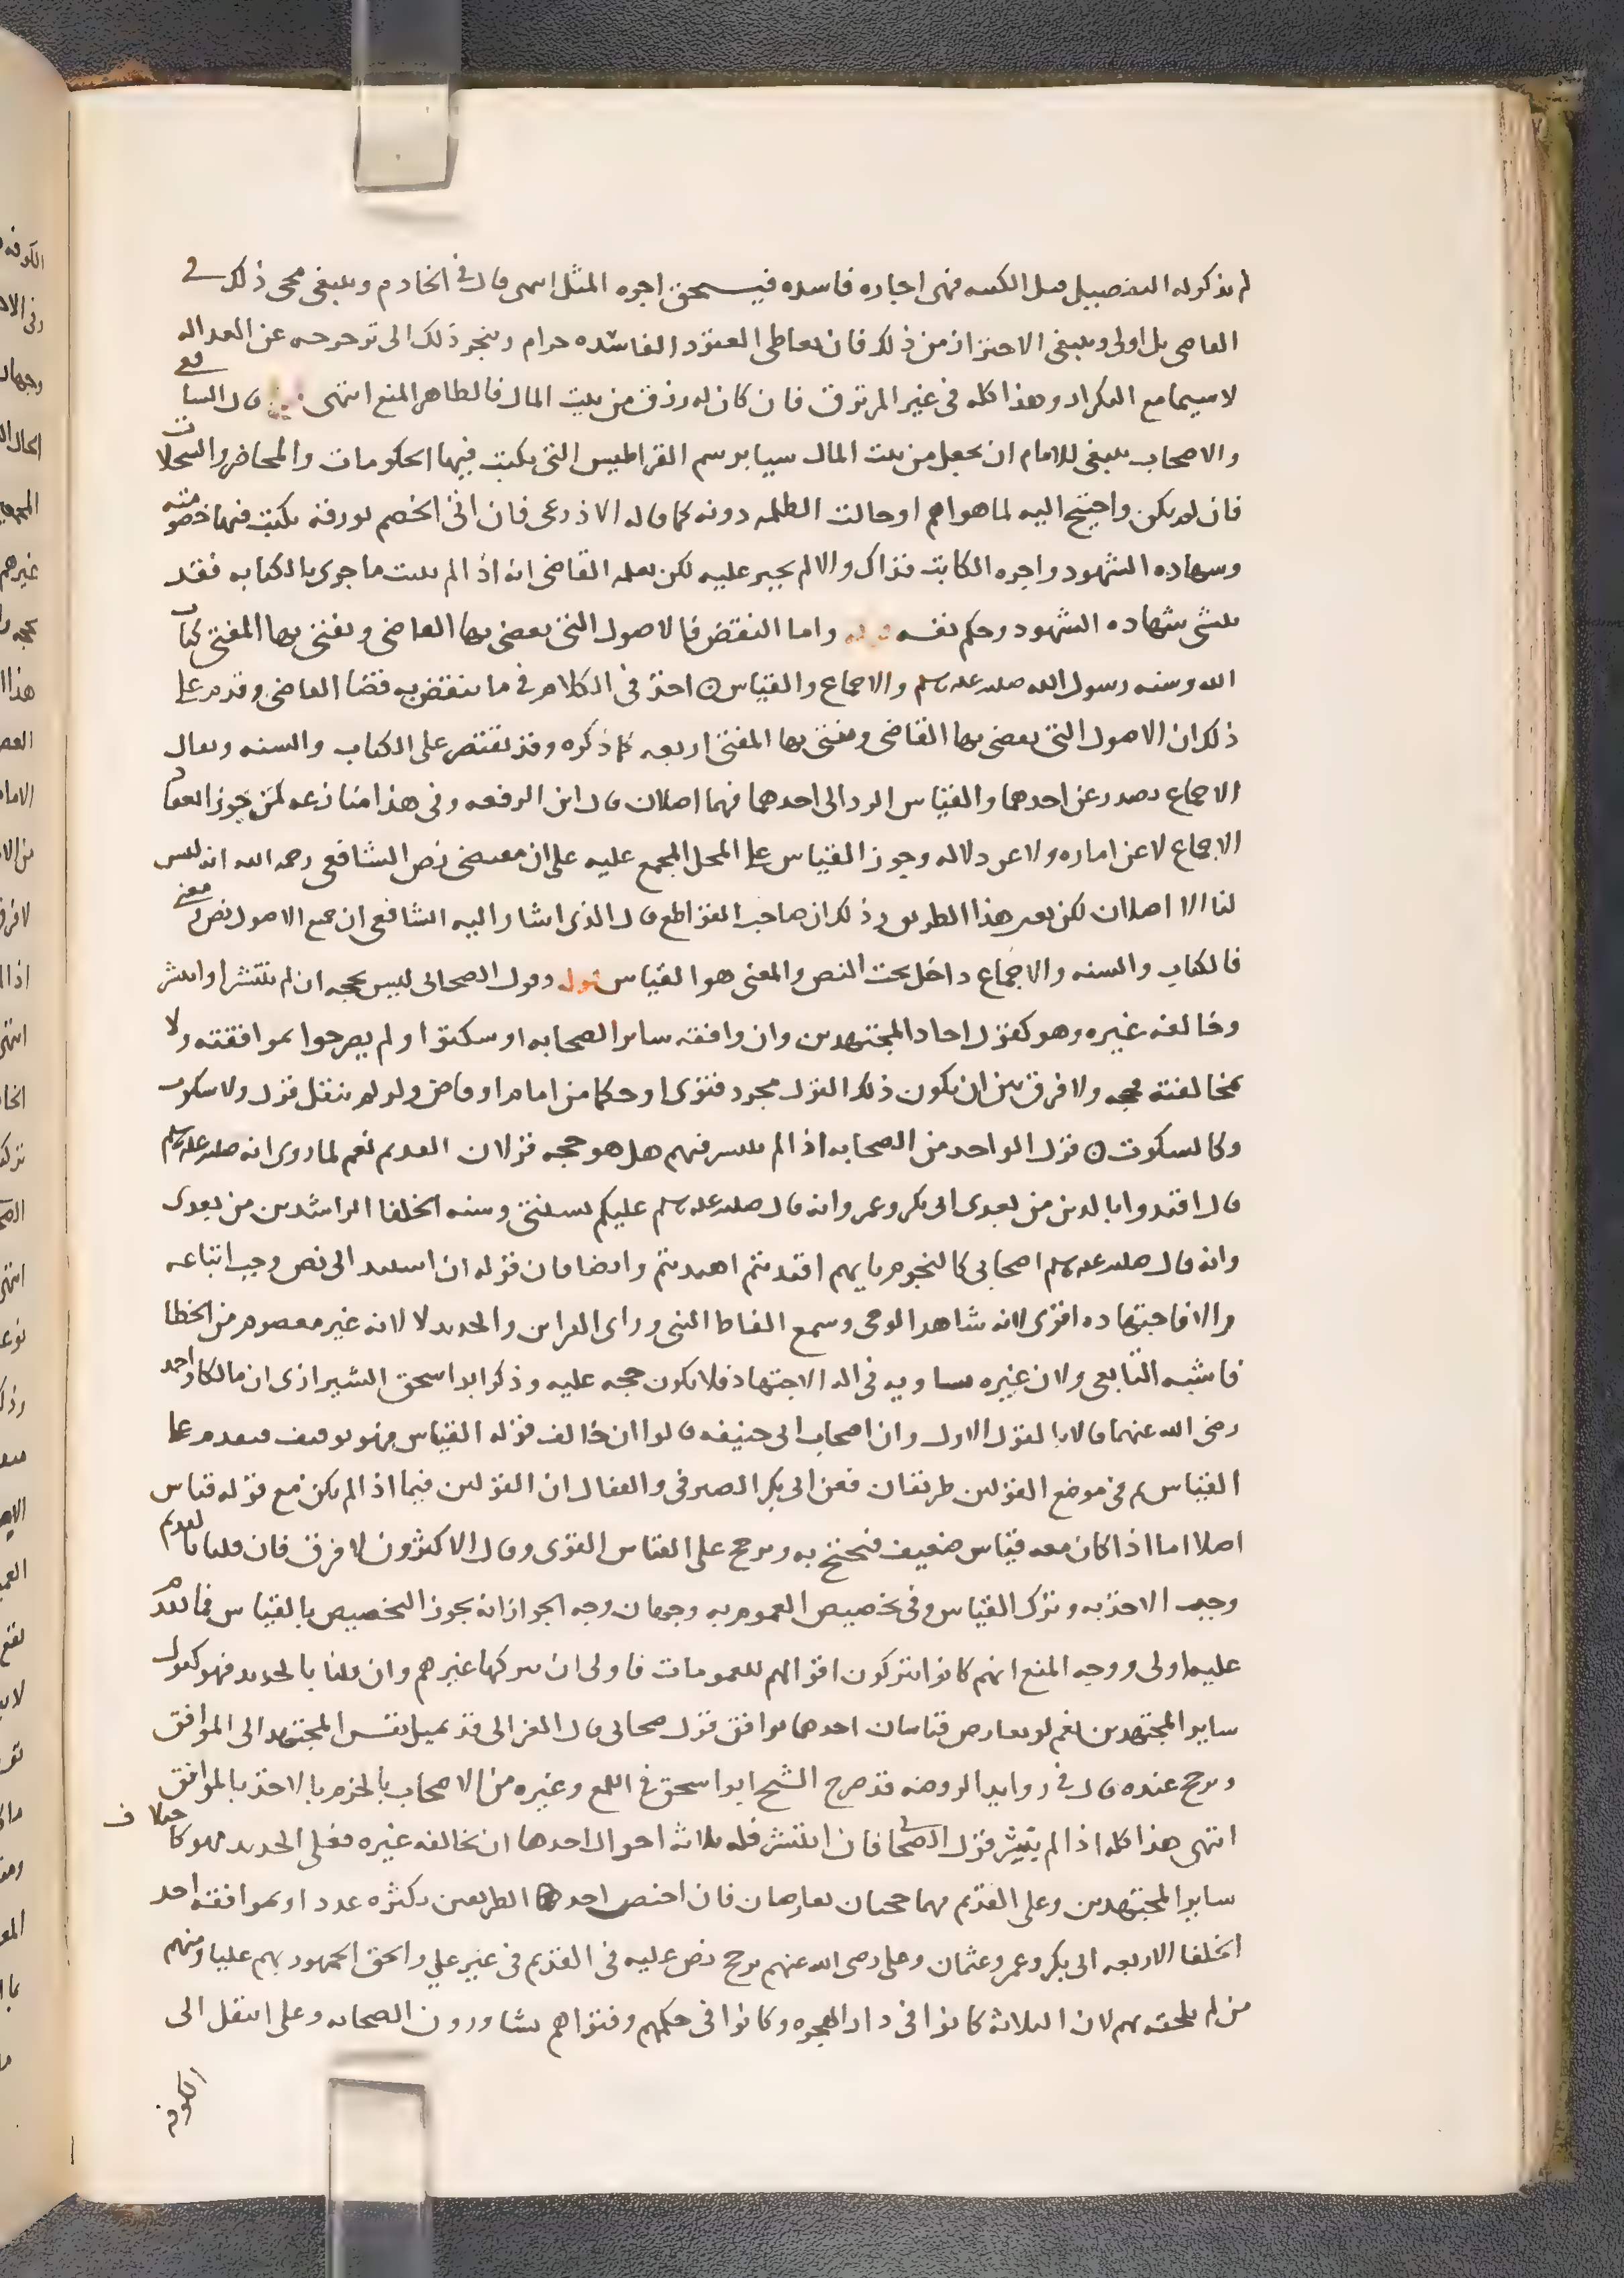 لم يذكر له التفصيل قبل الكتبه فهي اجاره فاسده فيستحق اجره المثل انتهى قال في الخادم وينبغي مجي ذلك في
القاضي بل اولى وينبغي الاحتراز من ذلك فان تعاطي العقود الفاسده حرام وينجر ذلك الى ترحرحه عن العداله
لا سيما مع التكرار وهذا كله في غير المرتزق فان كان له رزق من بيت المال فالظاهر المنع انتهى قال الشافعي
والاصحاب ينبغي للامام ان يجعل من بيت المال سيا برسم القراطيس التي يكتب فيها الحكومات والمحاضر والسجلات
فان لم يكن واحتيج اليه لما هو اهم او حالت الظلمه دونه كما قاله الاذرعي فان اتى الخصم بورقه يكتب فيها خصومته
وسهاده الشهود واجره الكاتب فذاك والا لم يجبر عليه لكن يعلمه القاضي انه اذا لم يثبت ما جرى بالكتابه فقد
ينسى شهاده الشهود وحكم نفسه واما النقض فالاصول التي يقضي بها القاضي ويفتي بها المفتي كتاب
الله وسنه رسول الله صلى الله عليه وسلم والاجماع والقياس ○ اخذ في الكلام في ما ينقض به قضا القاضي وقدم على
ذلك ان الاصول التي يقضي بها القاضي ويفتي بها المفتي اربعه كما ذكره وقد يقتصر على الكتاب والسنه ويقال
الاجماع يصدر عن احدهما والقياس الرد الى احدهما فهما اصلان قال ابن الرفعه وفي هذا منازعه لمن جوز انعقاد
الاجماع لا عن اماره ولا عن دلاله وجوز القياس على المحل المجمع عليه على ان مقتضى نص الشافعي رحمه الله انه ليس
لنا الا اصلان لكن بغير هذا الطريق وذلك ان صاحب القواطع قال الذي اشار اليه الشافعي ان جميع الاصول نص ومعنى
فالكتاب والسنه والاجماع داخل تحت النص والمعنى هو القياس قوله وقول الصحابي ليس بحجه ان لم ينتشر او انتشر
وخالفه غيره وهو كقول احاد المجتهدين وان وافقه ساير الصحابه او سكتوا ولم يصرحوا بموافقته ولا
بمخالفته فحجه ولا فرق بين ان يكون ذلك القول مجرد فتوى او حكما من امام او قاض ولو لم ينقل قول ولا سكوت
وكالسكوت ○ قول الواحد من الصحابه اذا لم ينتشر فيهم هل هو حجه قولان القديم نعم لما روى انه صلى الله عليه وسلم
قال اقتدوا بالدين من بعدي ابي بكر وعمر وانه قال صلى الله عليه وسلم عليكم بسنتي وسنه الخلفا الراشدين من بعدي
وانه قال صلى الله عليه وسلم اصحابي كالنجوم بايهم اقتديتم اهتديتم وايضا فان قوله ان استند الى نص وجب اتباعه
والا فاجتهاده اقوى لانه شاهد الوحي وسمع الفاظ النبي وراى القراين والجديد لا لانه غير معصوم من الخطا
فاشبه التابعي ولان غيره يساويه في اله الاجتهاد فلا يكون حجه عليه وذكر ابو اسحق الشيرازي ان مالكا واحمد
رضي الله عنهما قالا بالقول الاول وان اصحاب ابي حنيفه قالوا ان خالف قوله القياس فهو توقيف فيقدم على
القياس ثم في موضع القولين طريقان فعن ابي بكر الصيرفي والقفال ان القولين فيما اذا لم يكن مع قوله قياس
اصلا اما اذا كان معه قياس ضعيف فيحتج به ويرجح على القياس القوي وقال الاكثرون لا فرق فان قلنا بالقديم
وجب الاخذ به وترك القياس وفي تخصيص العموم به وجهان وجه الجواز انه يجوز التخصيص بالقياس فما تقدم
عليه اولى ووجه المنع انهم كانوا يتركون اقوالهم للعمومات فاولى ان يتركها غيرهم وان قلنا بالجديد فهو كقول
ساير المجتهدين نعم لو تعارض قياسان احدهما يوافق قول صحابي قال الغزالي قد تميل نفس المجتهد الى الموافق
ويرجح عنده قال في زوايد الروضه قد صرح الشيخ ابو اسحق في اللمع وغيره من الاصحاب بالجزم بالاخذ بالموافق
انتهى هذا كله اذا لم ينتشر قول الصحابي فان انتشر فله ثلاثه احوال احدها ان يخالفه غيره فعلى الجديد هو كاختلاف
ساير المجتهدين وعلى القديم هما حجتان تعارضان فان اختص احد الطريقين بكثره عدد او بموافقه احد
الخلفا الاربعه ابي بكر وعمر وعثمان وعلي رضي الله عنهم يرجح نص عليه في القديم في غير علي والحق الجمهور بهم عليا ومنهم
من لم يلحقه بهم لان الثلاثه كانوا في دار الهجره وكانوا في حكمهم وفتواهم يشاورون الصحابه وعلي انتقل الى
الكوفه